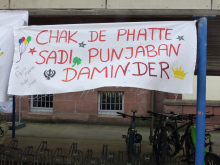 CHAK DE PHATTE
SADI PUNJABAN
DAMINDER